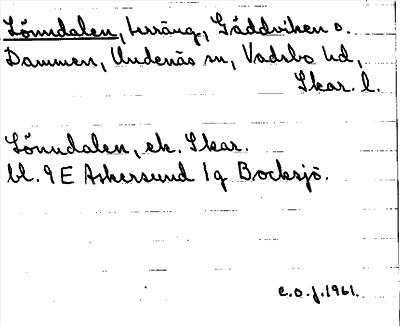 Lönndalen, terräng, Gäddviken o.
Dammen, Undenäs sn, Vadsbo hd,
Skar. l.
Lönndalen, ek. Skar.
bl. 9 E Askersund 1 g Bocksjö.
C.O.J. 1961.